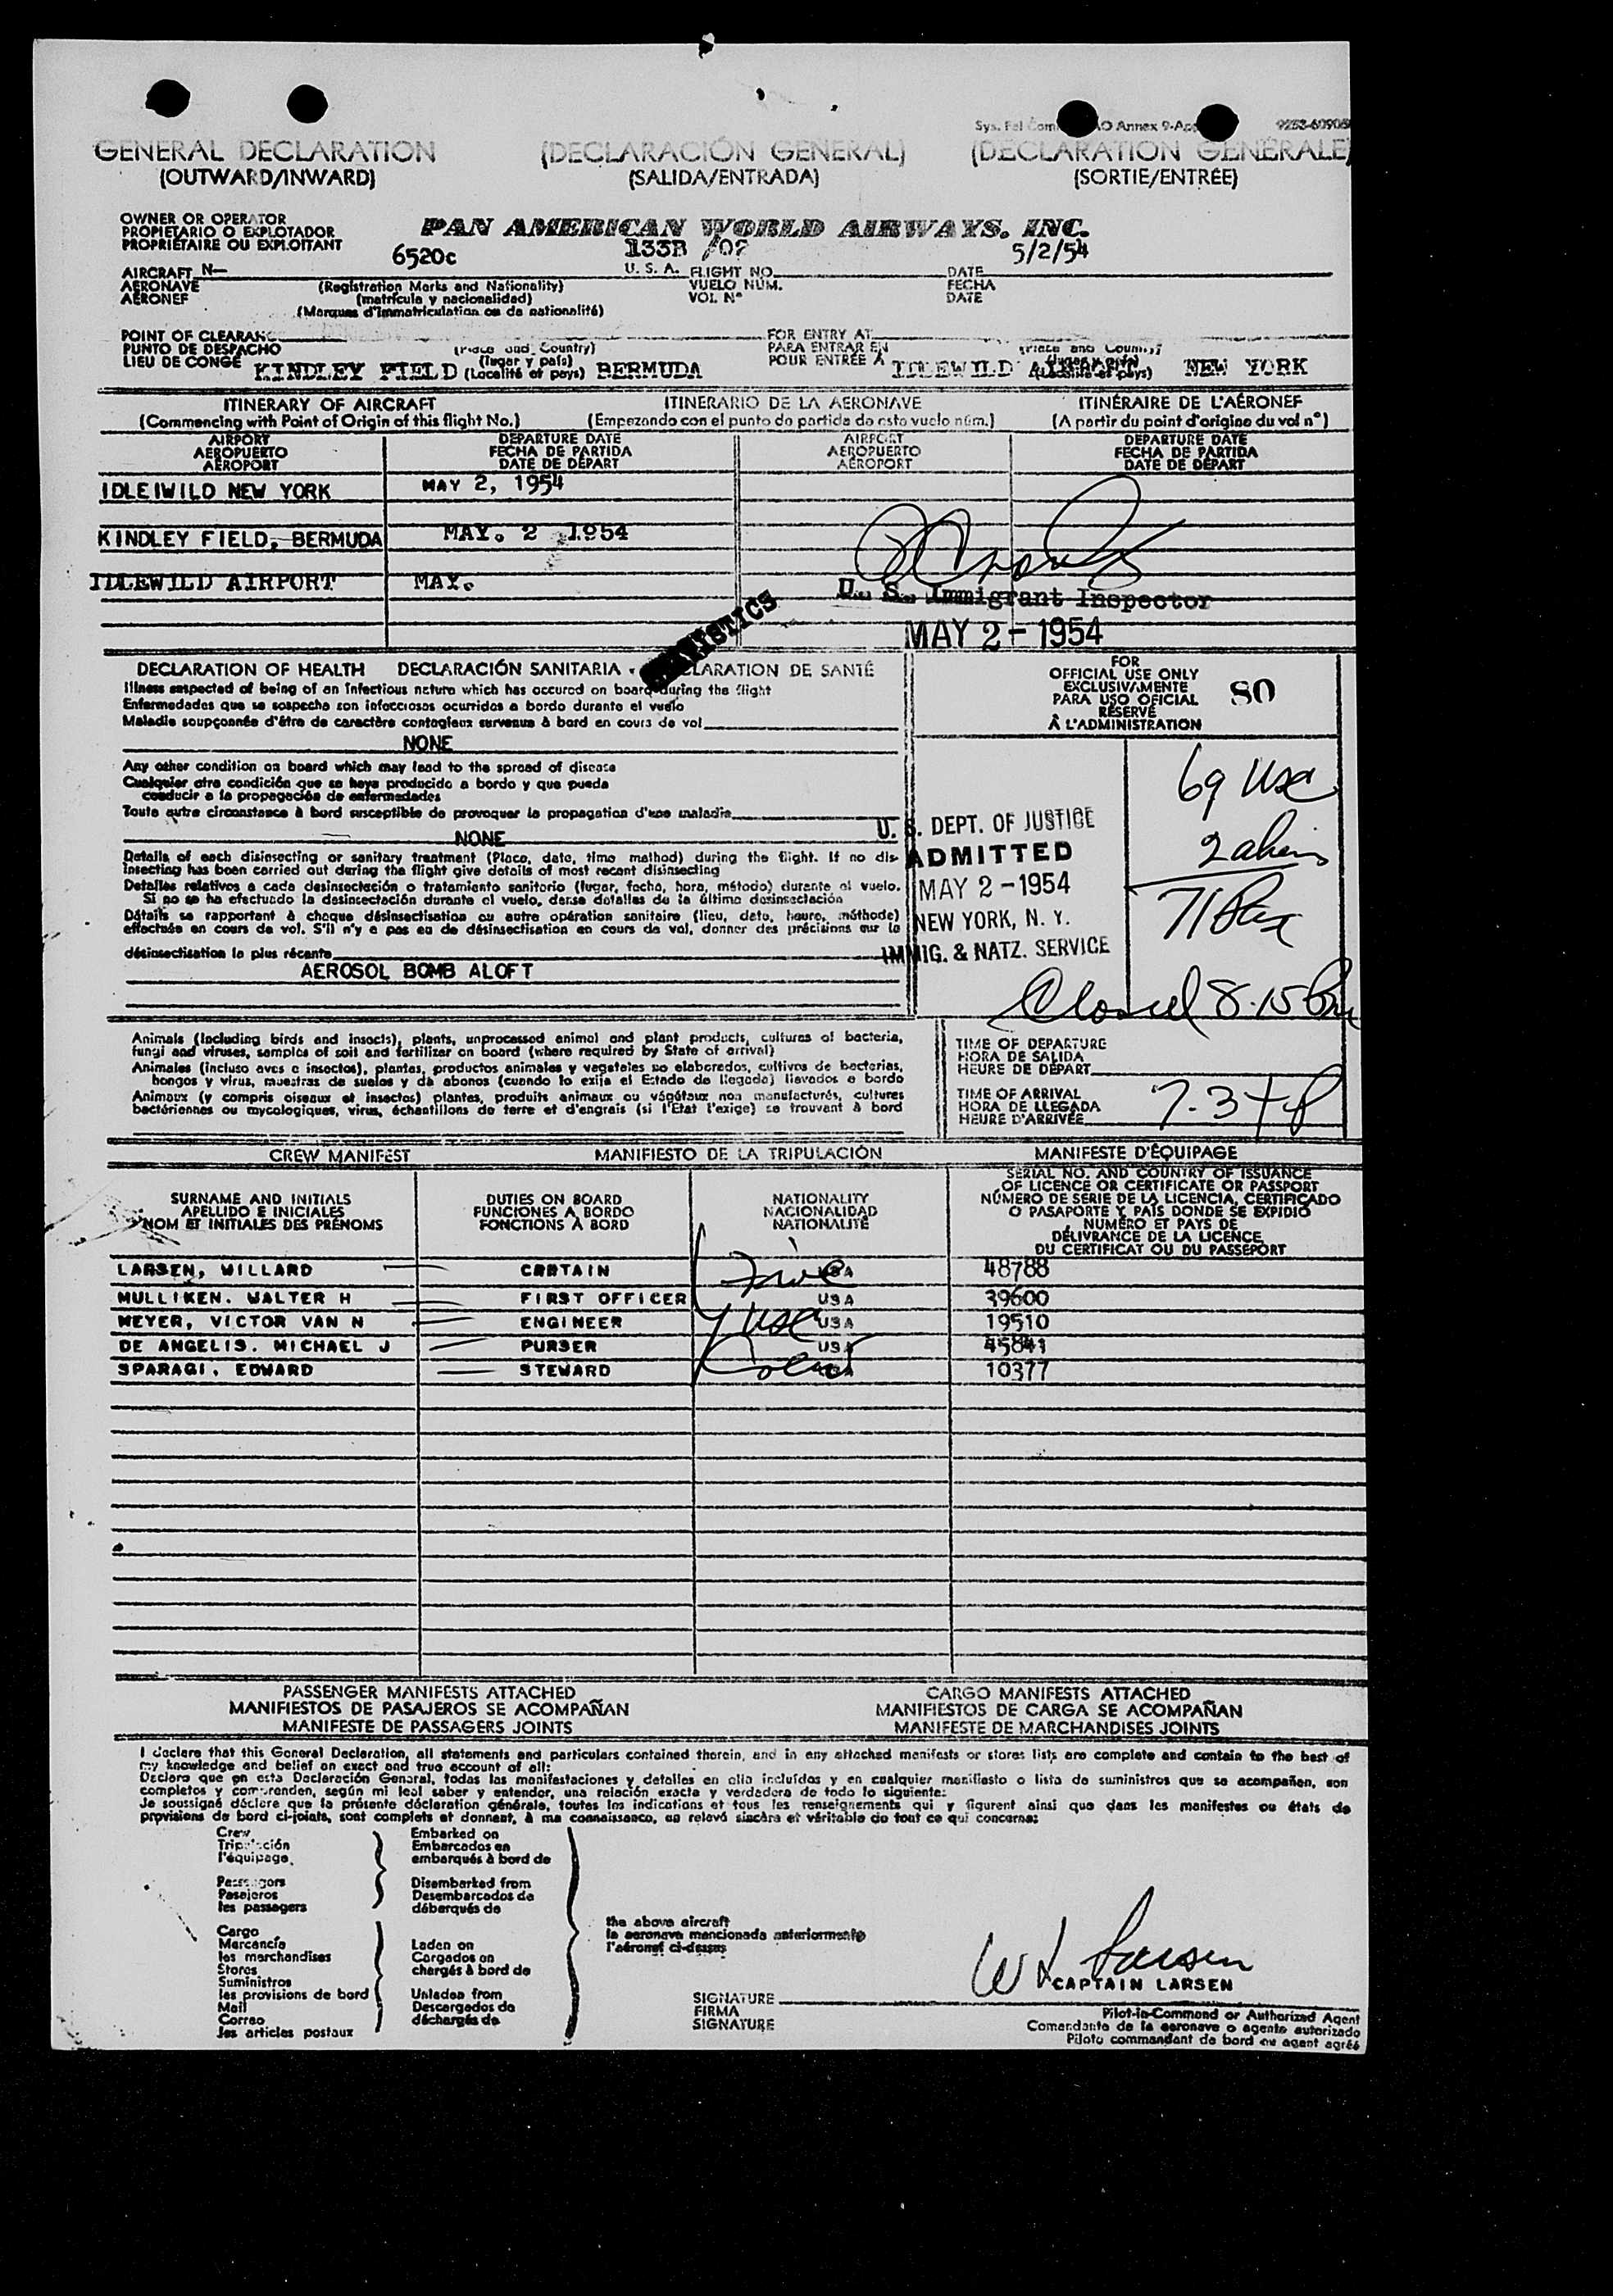 Annex 9-App
9253-60905
GENERAL DECLARATION (DECLARACIÓN GENERAL) (DECLARATION GÉNÉRALE)
(OUTWARD/INWARD) (SALIDA/ENTRADA) (SORTIE/ENTRÉE)
OWNER OR OPERATOR
PROPIETARIO O EXPLOTADOR
PROPRIÉTAIRE OU EXPLOITANT
PAN AMERICAN WORLD AIRWAYS. INC.
6520c 133B /02 5/2/54
AIRCRAFT N— U. S. A. FLIGHT NO. DATE
AERONAVE (Registration Marks and Nationality) VUELO NUM. FECHA
AÉRONEF (matrícula y nacionalidad) VOL Nº DATE
(Marques d'immatriculation ou de nationalité)
POINT OF CLEARANC FOR ENTRY AT
PUNTO DE DESPACHO (Place and Country) PARA ENTRAR EN (Place and Country)
LIEU DE CONGÉ (lugar y país) POUR ENTRÉE A
KINDLEY FIELD (Localité et pays) BERMUDA IDLEWILD AIRPORT NEW YORK
ITINERARY OF AIRCRAFT ITINERARIO DE LA AERONAVE ITINÉRAIRE DE L'AÉRONEF
(Commencing with Point of Origin of this flight No.) (Empezando con el punto de partida de este vuelo núm.) (A partir du point d'origine du vol nº)
AIRPORT DEPARTURE DATE AIRPORT DEPARTURE DATE
AEROPUERTO FECHA DE PARTIDA AEROPUERTO FECHA DE PARTIDA
AÉROPORT DATE DE DÉPART AÉROPORT DATE DE DÉPART
IDLEIWILD NEW YORK MAY 2, 1954
KINDLEY FIELD, BERMUDA MAY. 2 1954
IDLEWILD AIRPORT MAY.
U. S. Immigrant Inspector
MAY 2 - 1954
DECLARATION OF HEALTH DECLARACIÓN SANITARIA LARATION DE SANTÉ
Illness suspected of being of an infectious nature which has occured on board during the flight
Enfermedades que se sospecha son infecciosas ocurridas a bordo durante el vuelo
Maladie soupçonnée d'être de caractère contagieux survenue à bord en cours de vol
NONE
Any other condition on board which may lead to the spread of disease
Cualquier otra condición que se haya producido a bordo y que pueda
conducir a la propagación de enfermedades
Toute autre circonstance à bord susceptible de provoquer la propagation d'une maladie
NONE
Details of each disinsecting or sanitary treatment (Place, date, time method) during the flight. If no dis-
insecting has been carried out during the flight give details of most recent disinsecting
Detalles relativos a cada desinsectación o tratamiento sanitario (lugar, fecha, hora, método) durante el vuelo.
Si no se ha efectuado la desinsectación durante el vuelo, darse detalles de la última desinsectación
Détails se rapportant à chaque désinsectisation ou autre opération sanitaire (lieu, date, heure, méthode)
effectuée en cours de vol. S'il n'y a pas eu de désinsectisation en cours de vol, donner des précisions sur la
désinsectisation la plus récente
AEROSOL BOMB ALOFT
FOR
OFFICIAL USE ONLY
EXCLUSIVAMENTE
PARA USO OFICIAL
RÉSERVÉ
À L'ADMINISTRATION
80
69 USC
2 aliens
71 Pax
U. S. DEPT. OF JUSTICE
ADMITTED
MAY 2 - 1954
NEW YORK, N. Y.
IMMIG. & NATZ. SERVICE
Closed 8.15 Pm
Animals (including birds and insects), plants, unprocessed animal and plant products, cultures of bacteria,
fungi and viruses, samples of soil and fertilizer on board (where required by State of arrival)
Animales (incluso aves e insectos), plantas, productos animales y vegetales no elaborados, cultivos de bacterias,
hongos y virus, muestras de suelos y da abonos (cuando lo exija el Estado de llegada) llevados a bordo
Animaux (y compris oiseaux et insectes) plantes, produits animaux ou végétaux non manufacturés, cultures
bactériennes ou mycologiques, virus, échantillons de terre et d'engrais (si l'Etat l'exige) se trouvant à bord
TIME OF DEPARTURE
HORA DE SALIDA
HEURE DE DÉPART
TIME OF ARRIVAL
HORA DE LLEGADA
HEURE D'ARRIVÉE
CREW MANIFEST MANIFIESTO DE LA TRIPULACIÓN MANIFESTE D'ÉQUIPAGE
SURNAME AND INITIALS
APELLIDO E INICIALES
NOM ET INITIALES DES PRÉNOMS
DUTIES ON BOARD
FUNCIONES A BORDO
FONCTIONS À BORD
NATIONALITY
NACIONALIDAD
NATIONALITÉ
SERIAL NO. AND COUNTRY OF ISSUANCE
OF LICENCE OR CERTIFICATE OR PASSPORT
NÚMERO DE SERIE DE LA LICENCIA, CERTIFICADO
O PASAPORTE Y PAÍS DONDE SE EXPIDIÓ
NUMÉRO ET PAYS DE
DÉLIVRANCE DE LA LICENCE
DU CERTIFICAT OU DU PASSEPORT
LARSEN, WILLARD CAPTAIN USA 48788
MULLIKEN. WALTER H FIRST OFFICER USA 39600
MEYER, VICTOR VAN N ENGINEER USA 19510
DE ANGELIS. MICHAEL J PURSER USA 45841
SPARAGI, EDWARD STEWARD 10377
Five
USC
PASSENGER MANIFESTS ATTACHED CARGO MANIFESTS ATTACHED
MANIFIESTOS DE PASAJEROS SE ACOMPAÑAN MANIFIESTOS DE CARGA SE ACOMPAÑAN
MANIFESTE DE PASSAGERS JOINTS MANIFESTE DE MARCHANDISES JOINTS
I declare that this General Declaration, all statements and particulars contained therein, and in any attached manifests or stores lists are complete and contain to the best of
my knowledge and belief an exact and true account of all:
Declaro que en esta Declaración General, todas las manifestaciones y detalles en ella incluídos y en cualquier manifiesto o lista de suministros que se acompañen, son
completos y comprenden, según mi leal saber y entender, una relación exacta y verdadera de todo lo siguiente:
Je soussigné déclare que la présente déclaration générale, toutes les indications et tous les renseignements qui y figurent ainsi que dans les manifestes ou états de
provisions de bord ci-joints, sont complets et donnent, à ma connaissance, un relevé sincère et véritable de tout ce qui concerne:
Crew
Tripulación
l'équipage
Passengers
Pasajeros
les passagers
Cargo
Mercancía
les marchandises
Stores
Suministros
les provisions de bord
Mail
Correo
les articles postaux
Embarked on
Embarcados en
embarqués à bord de
Disembarked from
Desembarcados de
débarqués de
Laden on
Cargados en
chargés à bord de
Unladen from
Descargados de
déchargés de
the above aircraft
la aeronave mencionada anteriormente
l'aéronef ci-dessus
W L Larsen
CAPTAIN LARSEN
SIGNATURE
FIRMA
SIGNATURE
Pilot-in-Command or Authorized Agent
Comandante de la aeronave o agente autorizado
Pilote commandant de bord ou agent agréé